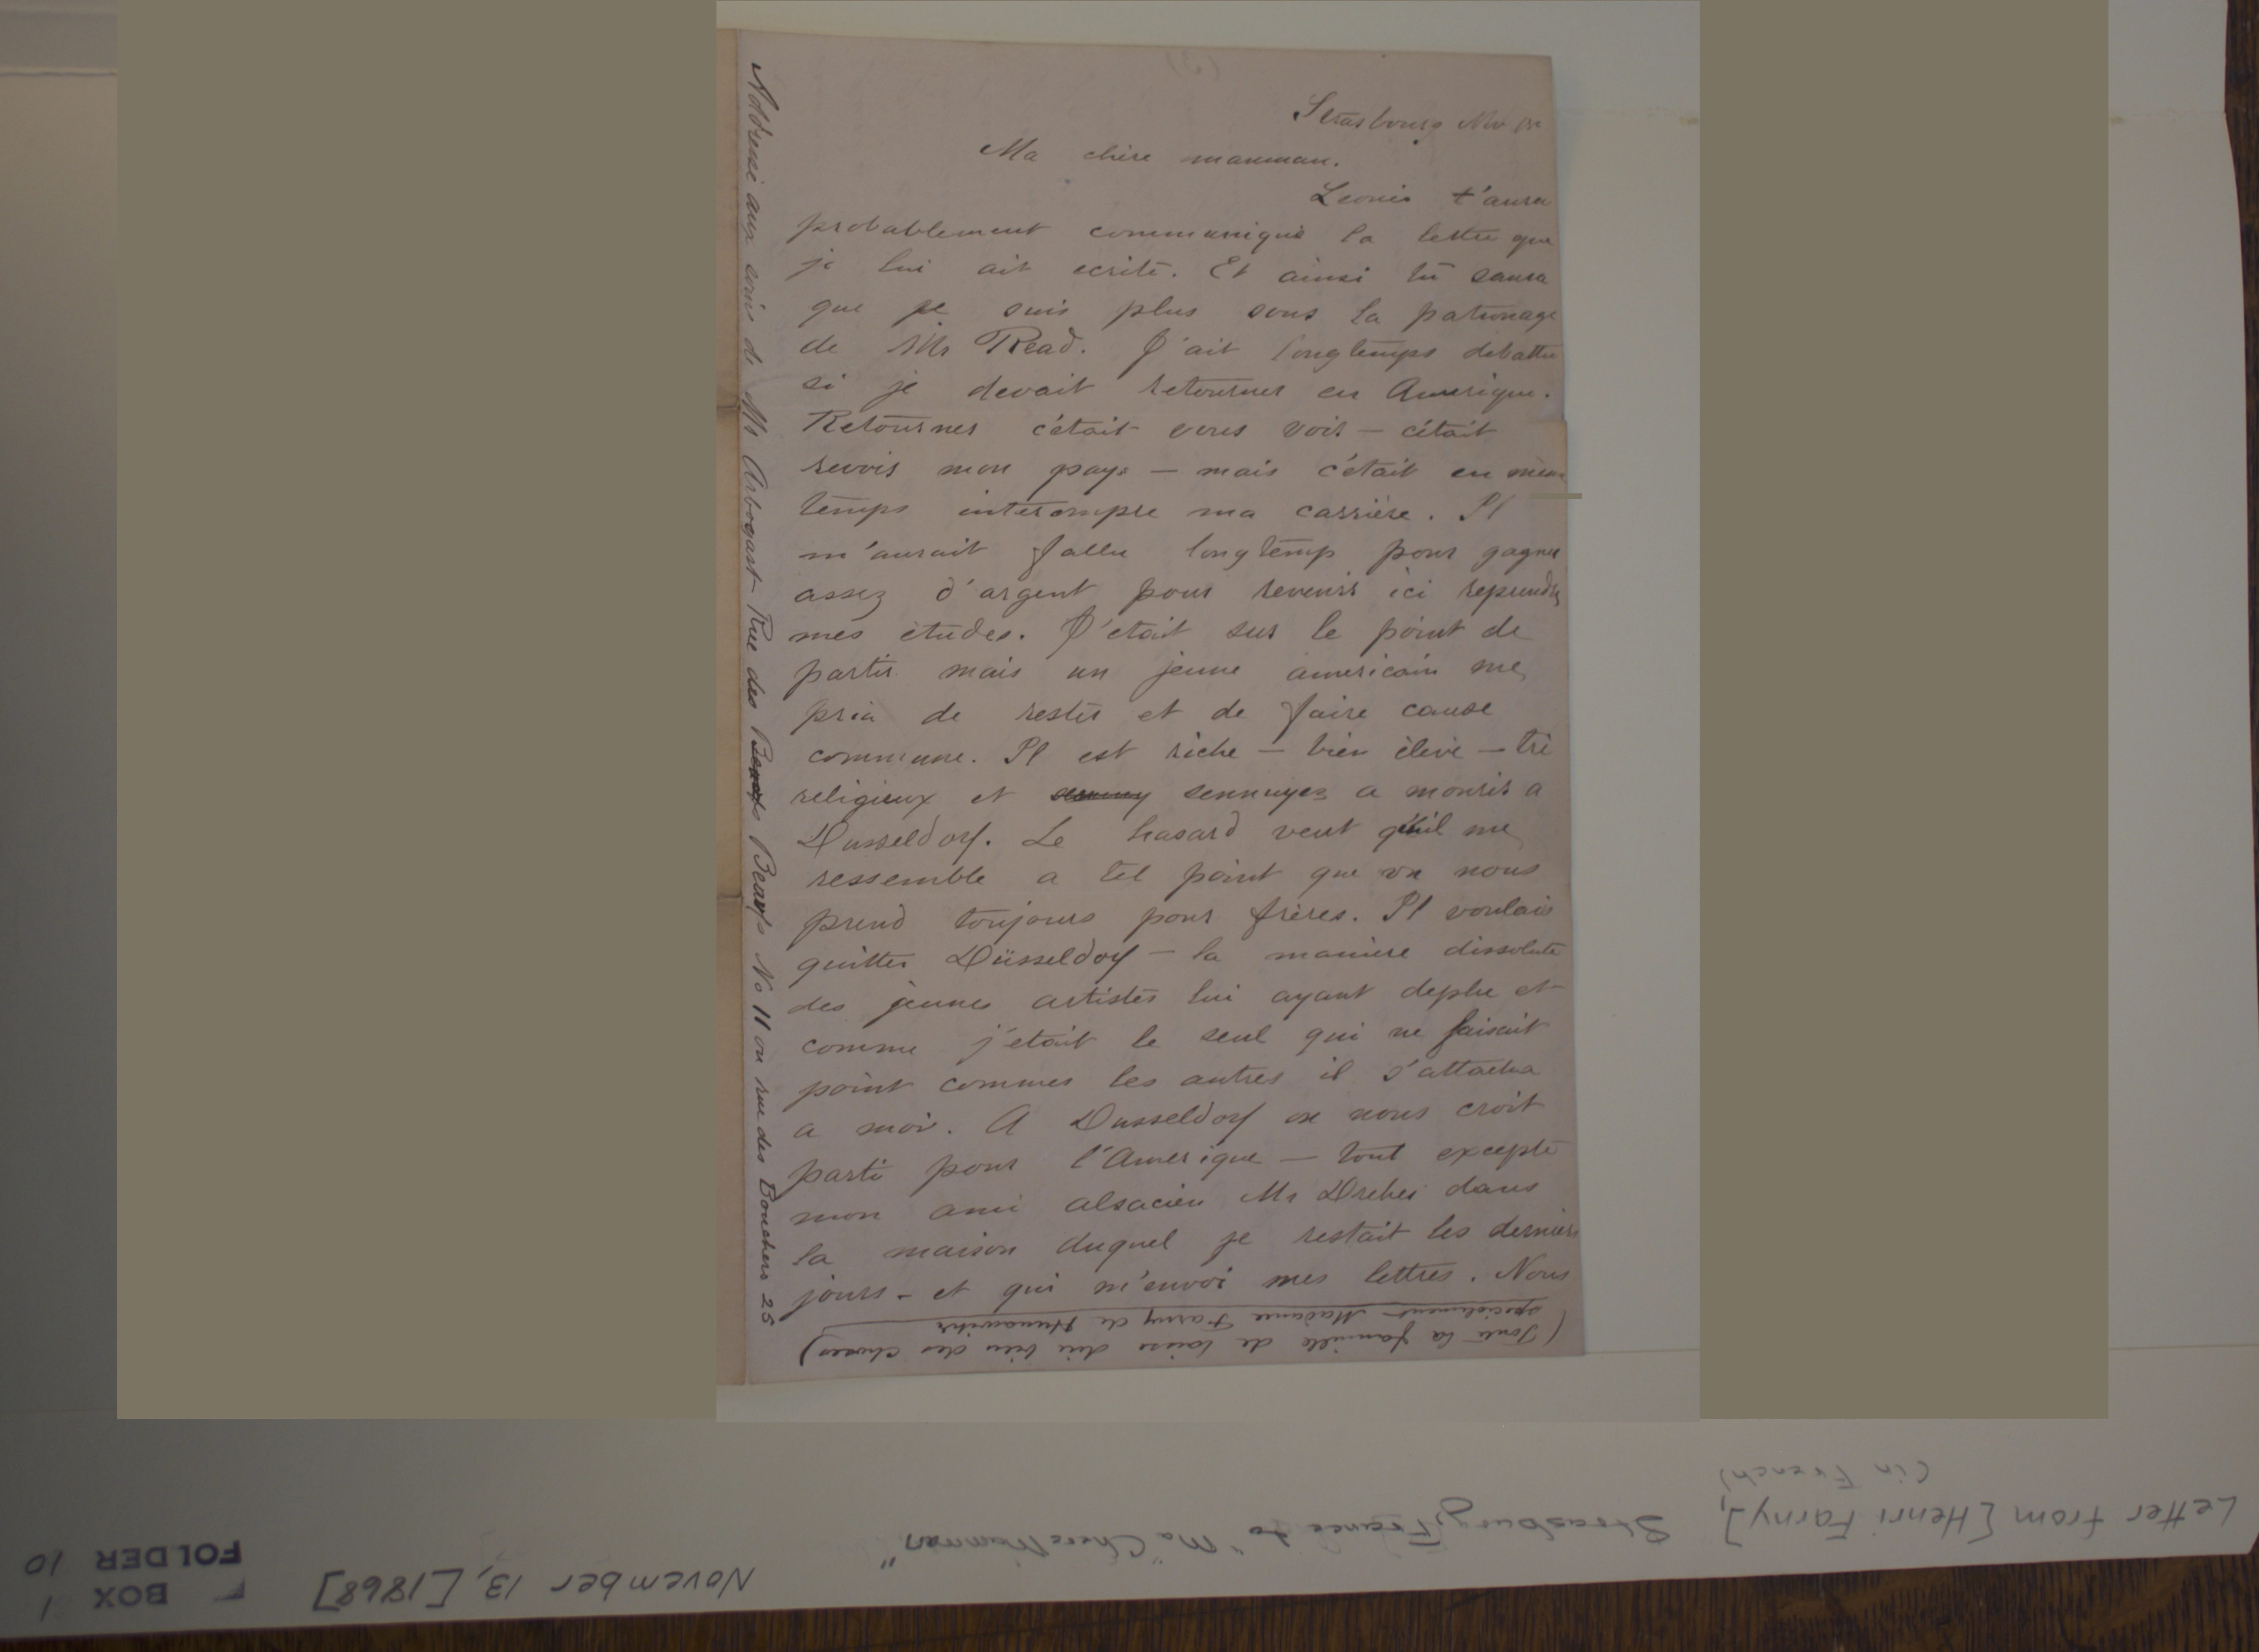 Strasbourg Nov 13
Ma chère manman.
Leonie t'aura
probablement communiqué la lettre que
je lui ait ecrite. Et ainsi tu saura
que je suis plus sous la patronage
de Mr Read. J'ait longtemps debattu
si je devait retourner en Amerique.
Retourner c'était vous voir — c'était
revoir mon pays — mais c'était en mème
temps interompre ma carrière. Il
m'aurait fallu longtemp pour gagner
assez d'argent pour revenir ici reprendre
mes études. J'etait sur le point de
partir mais un jeune americain me
pria de rester et de faire cause
commune. Il est riche — bien élevé — trè
religieux et sennuyez a mourir a
Dusseldorf. Le hasard veut qu'il me
ressemble a tel point que on nous
prend toujours pour frères. Il voulais
quitter Düsseldorf — la maniere dissolute
des jeunes artistes lui ayant deplu et
comme j'etait le seul qui ne faisait
point commes les autres il s'attacha
a moi. A Dusseldorf on nous croit
parti pour l'Amerique — tout excepté
mon ami alsacien Mr Dreher dans
la maison duquel je restait les derniers
jours - et qui m'envoi mes lettres. Nous
(Toute la famille de laisse dir bien des choses)
specialement Madame Farny de Hunawihr
Addresse aux soins de Mr Arbogast Rue des Bœufs No 11 ou rue des Bouchers 25
Letter from [Henri Farny], Strasbourg, France to "Ma Chere Manman"
(in French)
November 13, [1868]
BOX 1
FOLDER 10